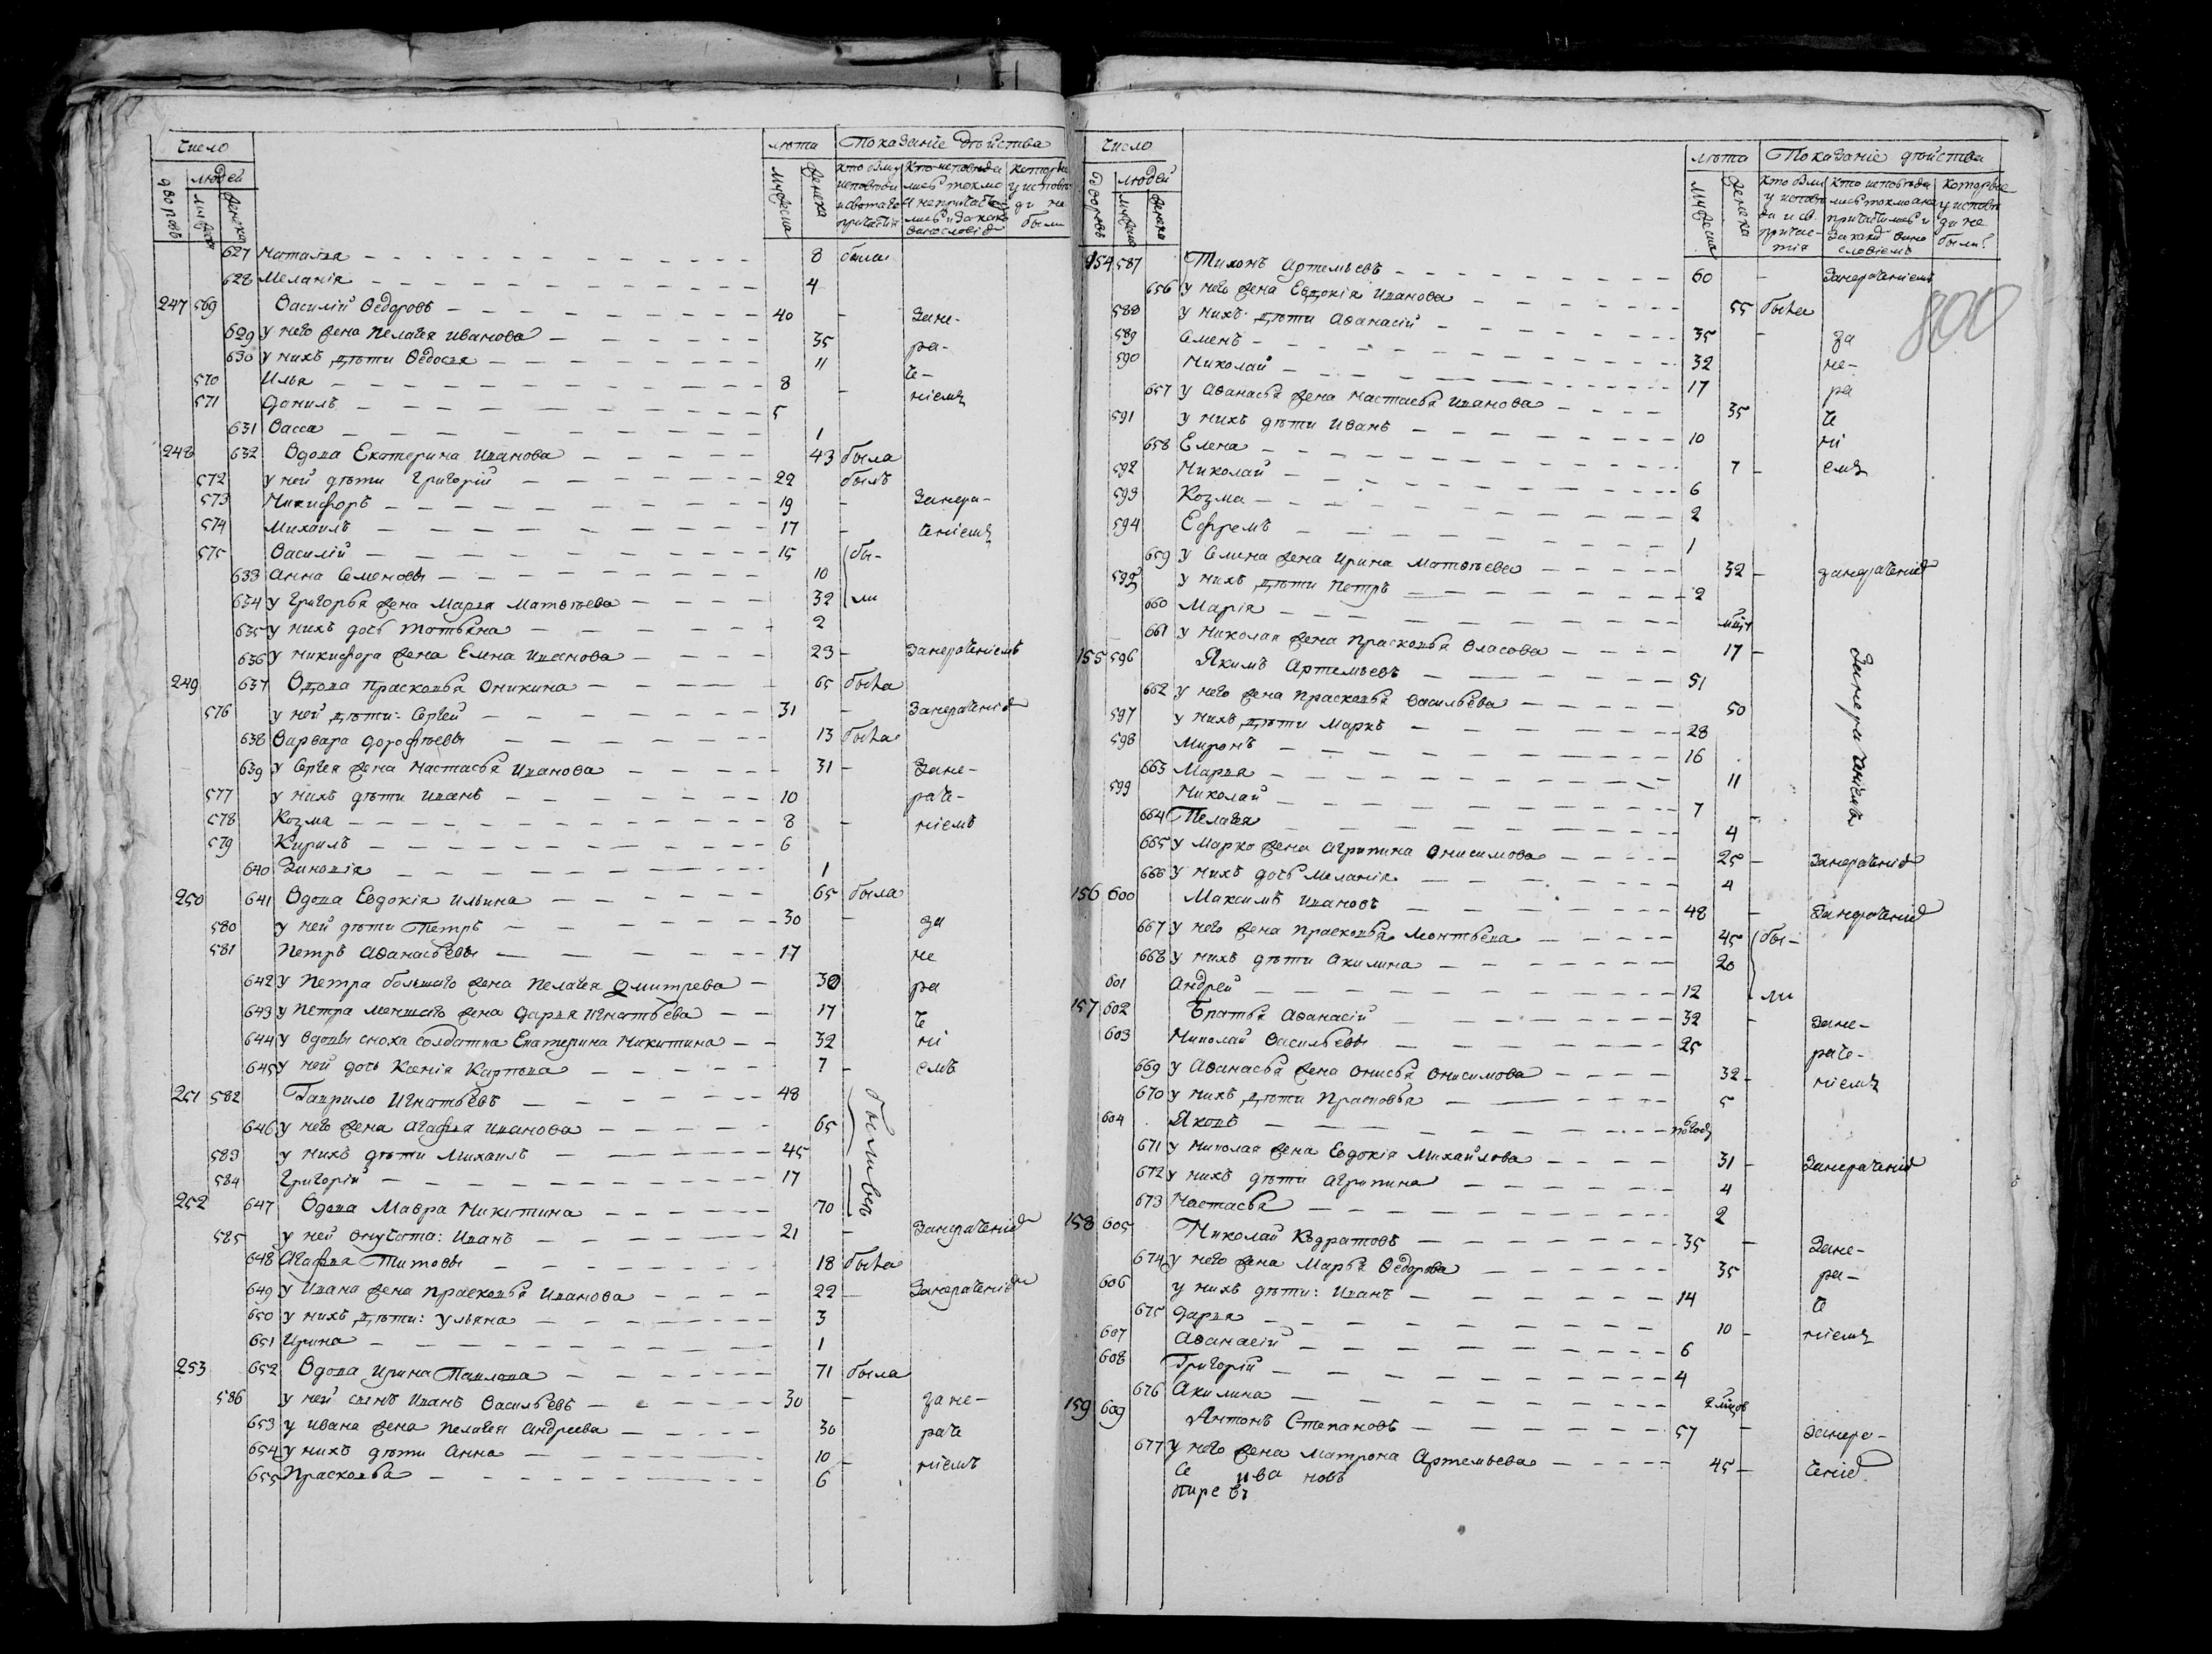 число лѣта Показаніе дѣйства
дворовъ людей мужеска женска мужеска женска
627 Наталья 8 была
628 Меланія 4
247 569 Василій Ѳедоровъ 40 - Зане-
629 у него жена Пелагея Иванова 35 ра-
630 у нихъ дѣти Ѳедосья 11 че-
570 Илья 8 - ніемъ
571 Данилъ 5
631 Васса 1
248 632 Вдова Екатерина Иванова 43 была
572 у ней дѣти Григорій 22 былъ
573 Никифоръ 19 - Занера-
574 Михаилъ 17 - ченіемъ
575 Василій 15 бы-
633 Анна Семеновы 10
634 у Григорья жена Марья Матвѣева 32 ли
635 у нихъ дочь Татьяна 2
636 у Никифора жена Елена Иванова 23 - Занераченіемъ
249 637 Вдова Прасковья Оникина 65 была
576 у ней дѣти: Сергей 31 - Занераченіе
638 Варвара Дорофѣевы 13 была
639 у Сергея жена Настасья Иванова 31 - Зане-
577 у нихъ дѣти Иванъ 10 раче-
578 Козма 8 - ніемъ
579 Кирилъ 6
640 Зиновія 1
250 641 Вдова Евдокія Ильина 65 была
580 у ней дѣти Петръ 30 - за
581 Петръ Аѳанасьевы 17 не
642 у Петра большаго жена Пелагея Дмитрева 30 ра
643 у Петра меншаго жена Дарья Игнатьева 17 че
644 у вдовы сноха солдатка Екатерина Никитина 32 ні
645 у ней дочь Ксенія Карпова 7 - емъ
251 582 Гаврило Игнатьевъ 48
646 у него жена Агафья Иванова 65
583 у нихъ дѣти Михаилъ 45
584 Григорій 17
252 647 Вдова Мавра Никитина 70
585 у ней внучата: Иванъ 21 - Занераченіе
648 Агафья Титовы 18 была
649 у Ивана жена Прасковья Иванова 22 - Занераченіе
650 у нихъ дѣти: Ульяна 3
651 Ирина 1
253 652 Вдова Ирина Павлова 71 была
586 у ней сынъ Иванъ Васильевъ 30 - зане-
653 у Ивана жена Пелагея Андреева 30 раче
654 у нихъ дѣти Анна 10 - ніемъ
655 Прасковья 6
число лѣта Показаніе дѣйства
дворовъ людей мужеска женска мужеска женска
800
154 587 Тихонъ Артемьевъ 60 - Занераченіемъ
656 у него жена Евдокія Иванова 55 была
588 у нихъ дѣти Аѳанасій 35 - за
589 Семенъ 32 не-
590 Николай 17 ра
657 у Аѳанасья жена Настасья Иванова 35 че
591 у нихъ дѣти Иванъ 10 ні
658 Елена 7 - емъ
592 Николай 6
593 Козма 2
594 Ефремъ 1
659 у Семена жена Ирина Матвѣева 32 - занераченіе
595 у нихъ дѣти Петръ 2
660 Марія
661 у Николая жена Прасковья Власова 17 -
155 596 Якимъ Артемьевъ 51
662 у него жена Прасковья Васильева 50
597 у нихъ дѣти Маркъ 28
598 Миронъ 16
663 Марья 11
599 Николай 7
664 Пелагея 4
Занераченіемъ
665 у Марко жена Агрипина Онисимова 25 - Занераченіе
666 у нихъ дочь Меланія 4
156 600 Максимъ Ивановъ 48 - Занераченіе
667 у него жена Прасковья Монтьева 45 бы-
668 у нихъ дѣти Акилина 20
601 Андрей 12 ли
157 602 Братья Аѳанасій 32 - Зане-
603 Николай Васильевы 25 раче-
669 у Аѳанасья жена Онисья Онисимова 32 - ніемъ
670 у нихъ дѣти Прасковья 5
604 Яковъ
671 у Николая жена Евдокія Михайлова 31 - Занераченіе
672 у нихъ дѣти Агрипина 4
673 Настасья 2
158 605 Николай Кѡдратовъ 35 - Зане-
674 у него жена Марья Ѳедорова 35 ра-
606 у нихъ дѣти: Иванъ 14 че
675 Дарья 10 - ніемъ
607 Аѳанасій 6
608 Григорій 4
676 Акилина
159 609 Антонъ Степановъ 57 - Занера-
677 у него жена Матрона Артемьева 45 - ченіе
ива новъ